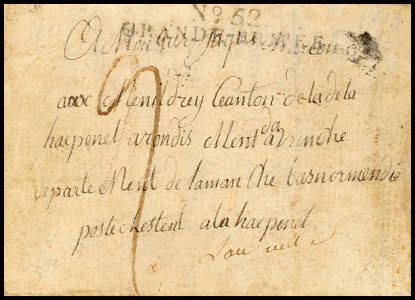 No 52
GRANDE-ARMÉE
A Monsieur
aux Menildrey Canton de la dela
haepenel arondis Ment da vrenche
departe Ment de laman Che basnormendie
poste chestent a la haepenel